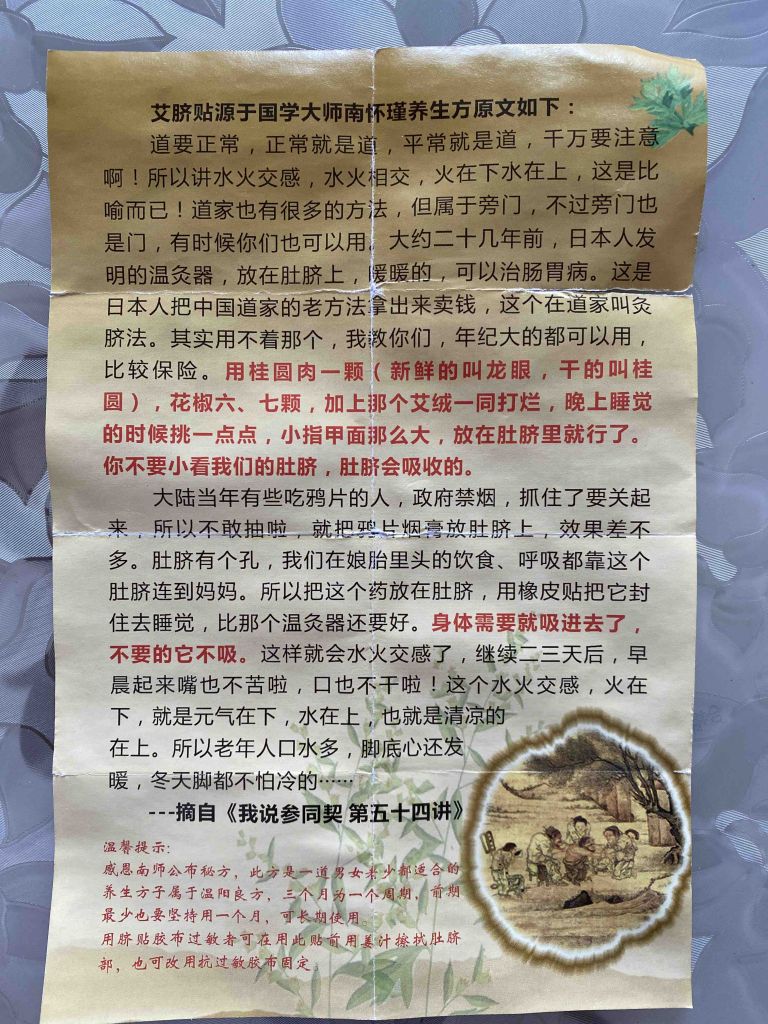 艾脐贴源于国学大师南怀瑾养生方原文如下：
道要正常，正常就是道，平常就是道，千万要注意
啊！所以讲水火交感，水火相交，火在下水在上，这是比
喻而已！道家也有很多的方法，但属于旁门，不过旁门也
是门，有时候你们也可以用。大约二十几年前，日本人发
明的温灸器，放在肚脐上，暖暖的，可以治肠胃病。这是
日本人把中国道家的老方法拿出来卖钱，这个在道家叫灸
脐法。其实用不着那个，我教你们，年纪大的都可以用，
比较保险。用桂圆肉一颗（新鲜的叫龙眼，干的叫桂
圆），花椒六、七颗，加上那个艾绒一同打烂，晚上睡觉
的时候挑一点点，小指甲面那么大，放在肚脐里就行了。
你不要小看我们的肚脐，肚脐会吸收的。
大陆当年有些吃鸦片的人，政府禁烟，抓住了要关起
来，所以不敢抽啦，就把鸦片烟膏放肚脐上，效果差不
多。肚脐有个孔，我们在娘胎里头的饮食、呼吸都靠这个
肚脐连到妈妈。所以把这个药放在肚脐，用橡皮贴把它封
住去睡觉，比那个温灸器还要好。身体需要就吸进去了，
不要的它不吸。这样就会水火交感了，继续二三天后，早
晨起来嘴也不苦啦，口也不干啦！这个水火交感，火在
下，就是元气在下，水在上，也就是清凉的
在上。所以老年人口水多，脚底心还发
暖，冬天脚都不怕冷的……
---摘自《我说参同契 第五十四讲》
温馨提示：
感恩南师公布秘方，此方是一道男女老少都适合的
养生方子属于温阳良方，三个月为一个周期，前期
最少也要坚持用一个月，可长期使用。
用脐贴胶布过敏者可在用此贴前用姜汁擦拭肚脐
部，也可改用抗过敏胶布固定。